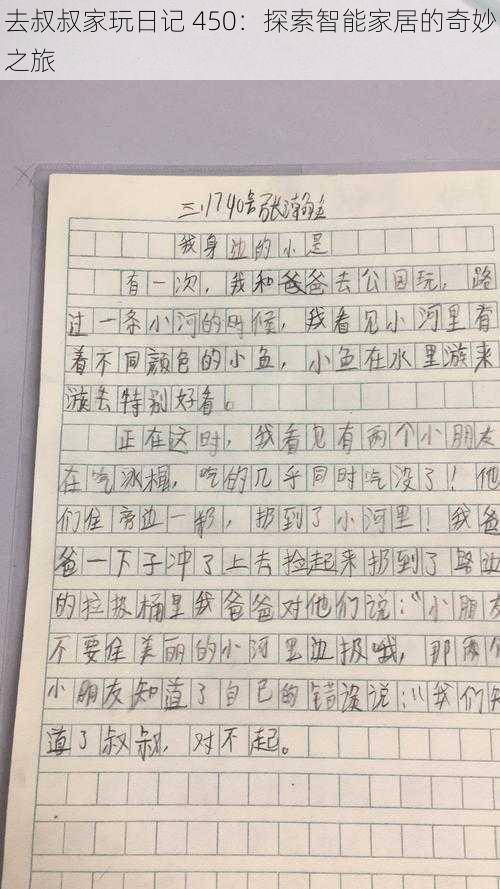 去叔叔家玩日记 450：探索智能家居的奇妙
之旅
三.1740号张瀚
我身边的小是
有一次，我和爸爸去公园玩，路
过一条小河的时候，我看见小河里有
着不同颜色的小鱼，小鱼在水里游来
游去特别好看。
正在这时，我看见有两个小朋友
在吃冰棍，吃的几乎同时吃没了！他
们往旁边一扔，扔到了小河里！我爸
爸一下子冲了上去捡起来扔到了路边
的垃圾桶里我爸爸对他们说：“小朋友
不要往美丽的小河里边扔哦，那两个
小朋友知道了自己的错误说：“我们知
道了叔叔，对不起。